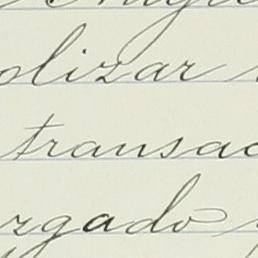 olizar
transac
rgado y